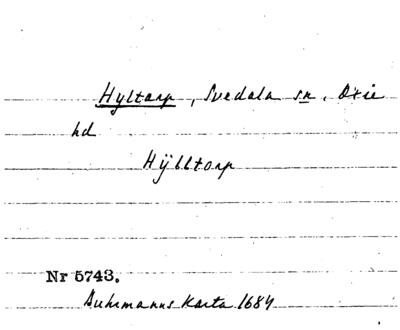 Hyltarp, Svedala sn. Oxie
hd
Hÿlltorp
Nr 5743.
Buhrmanns Karta 1684